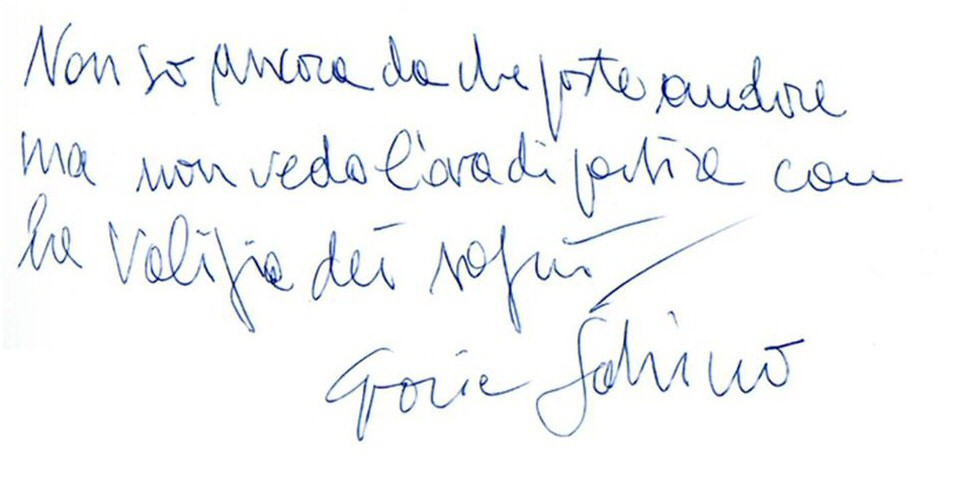 Non so ancora da che parte andare
ma non vedo l'ora di partire con
la Valigia dei sogni
Grazie Sabino